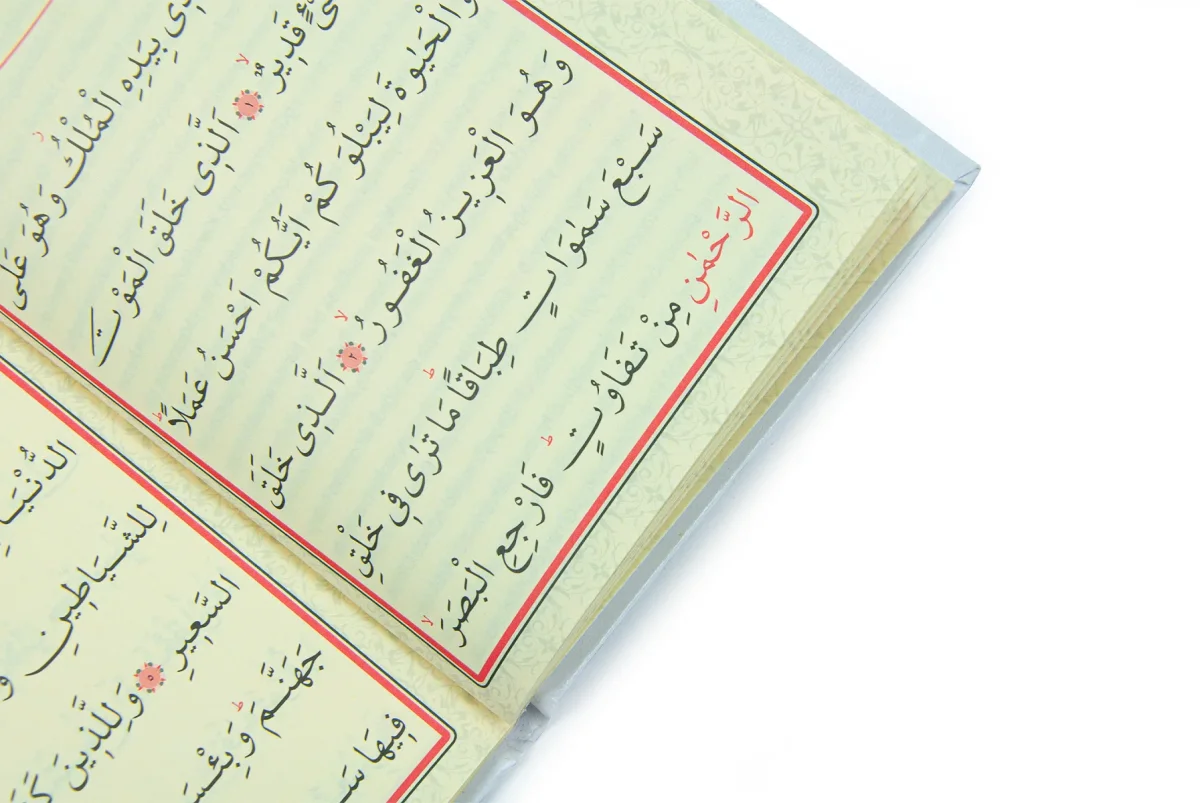 بِيَدِهِ الْمُلْكُ وَهُوَ عَلٰى
قَدِيرٌ ﴿١﴾ اَلَّذِى خَلَقَ الْمَوْتَ
وَالْحَيٰوةَ لِيَبْلُوَكُمْ اَيُّكُمْ اَحْسَنُ عَمَلًاۜ
وَهُوَ الْعَزِيزُ الْغَفُورُۙ ﴿٢﴾ اَلَّذِى خَلَقَ
سَبْعَ سَمٰوَاتٍ طِبَاقًاۜ مَا تَرٰى فِى خَلْقِ
الرَّحْمٰنِ مِنْ تَفَاوُتٍۜ فَارْجِعِ الْبَصَرَۙ
الدُّنْيَا
لِلشَّيَاطِينِ
السَّعِيرِ ﴿٥﴾ وَلِلَّذِينَ
جَهَنَّمَۜ وَبِئْسَ
فِيهَا